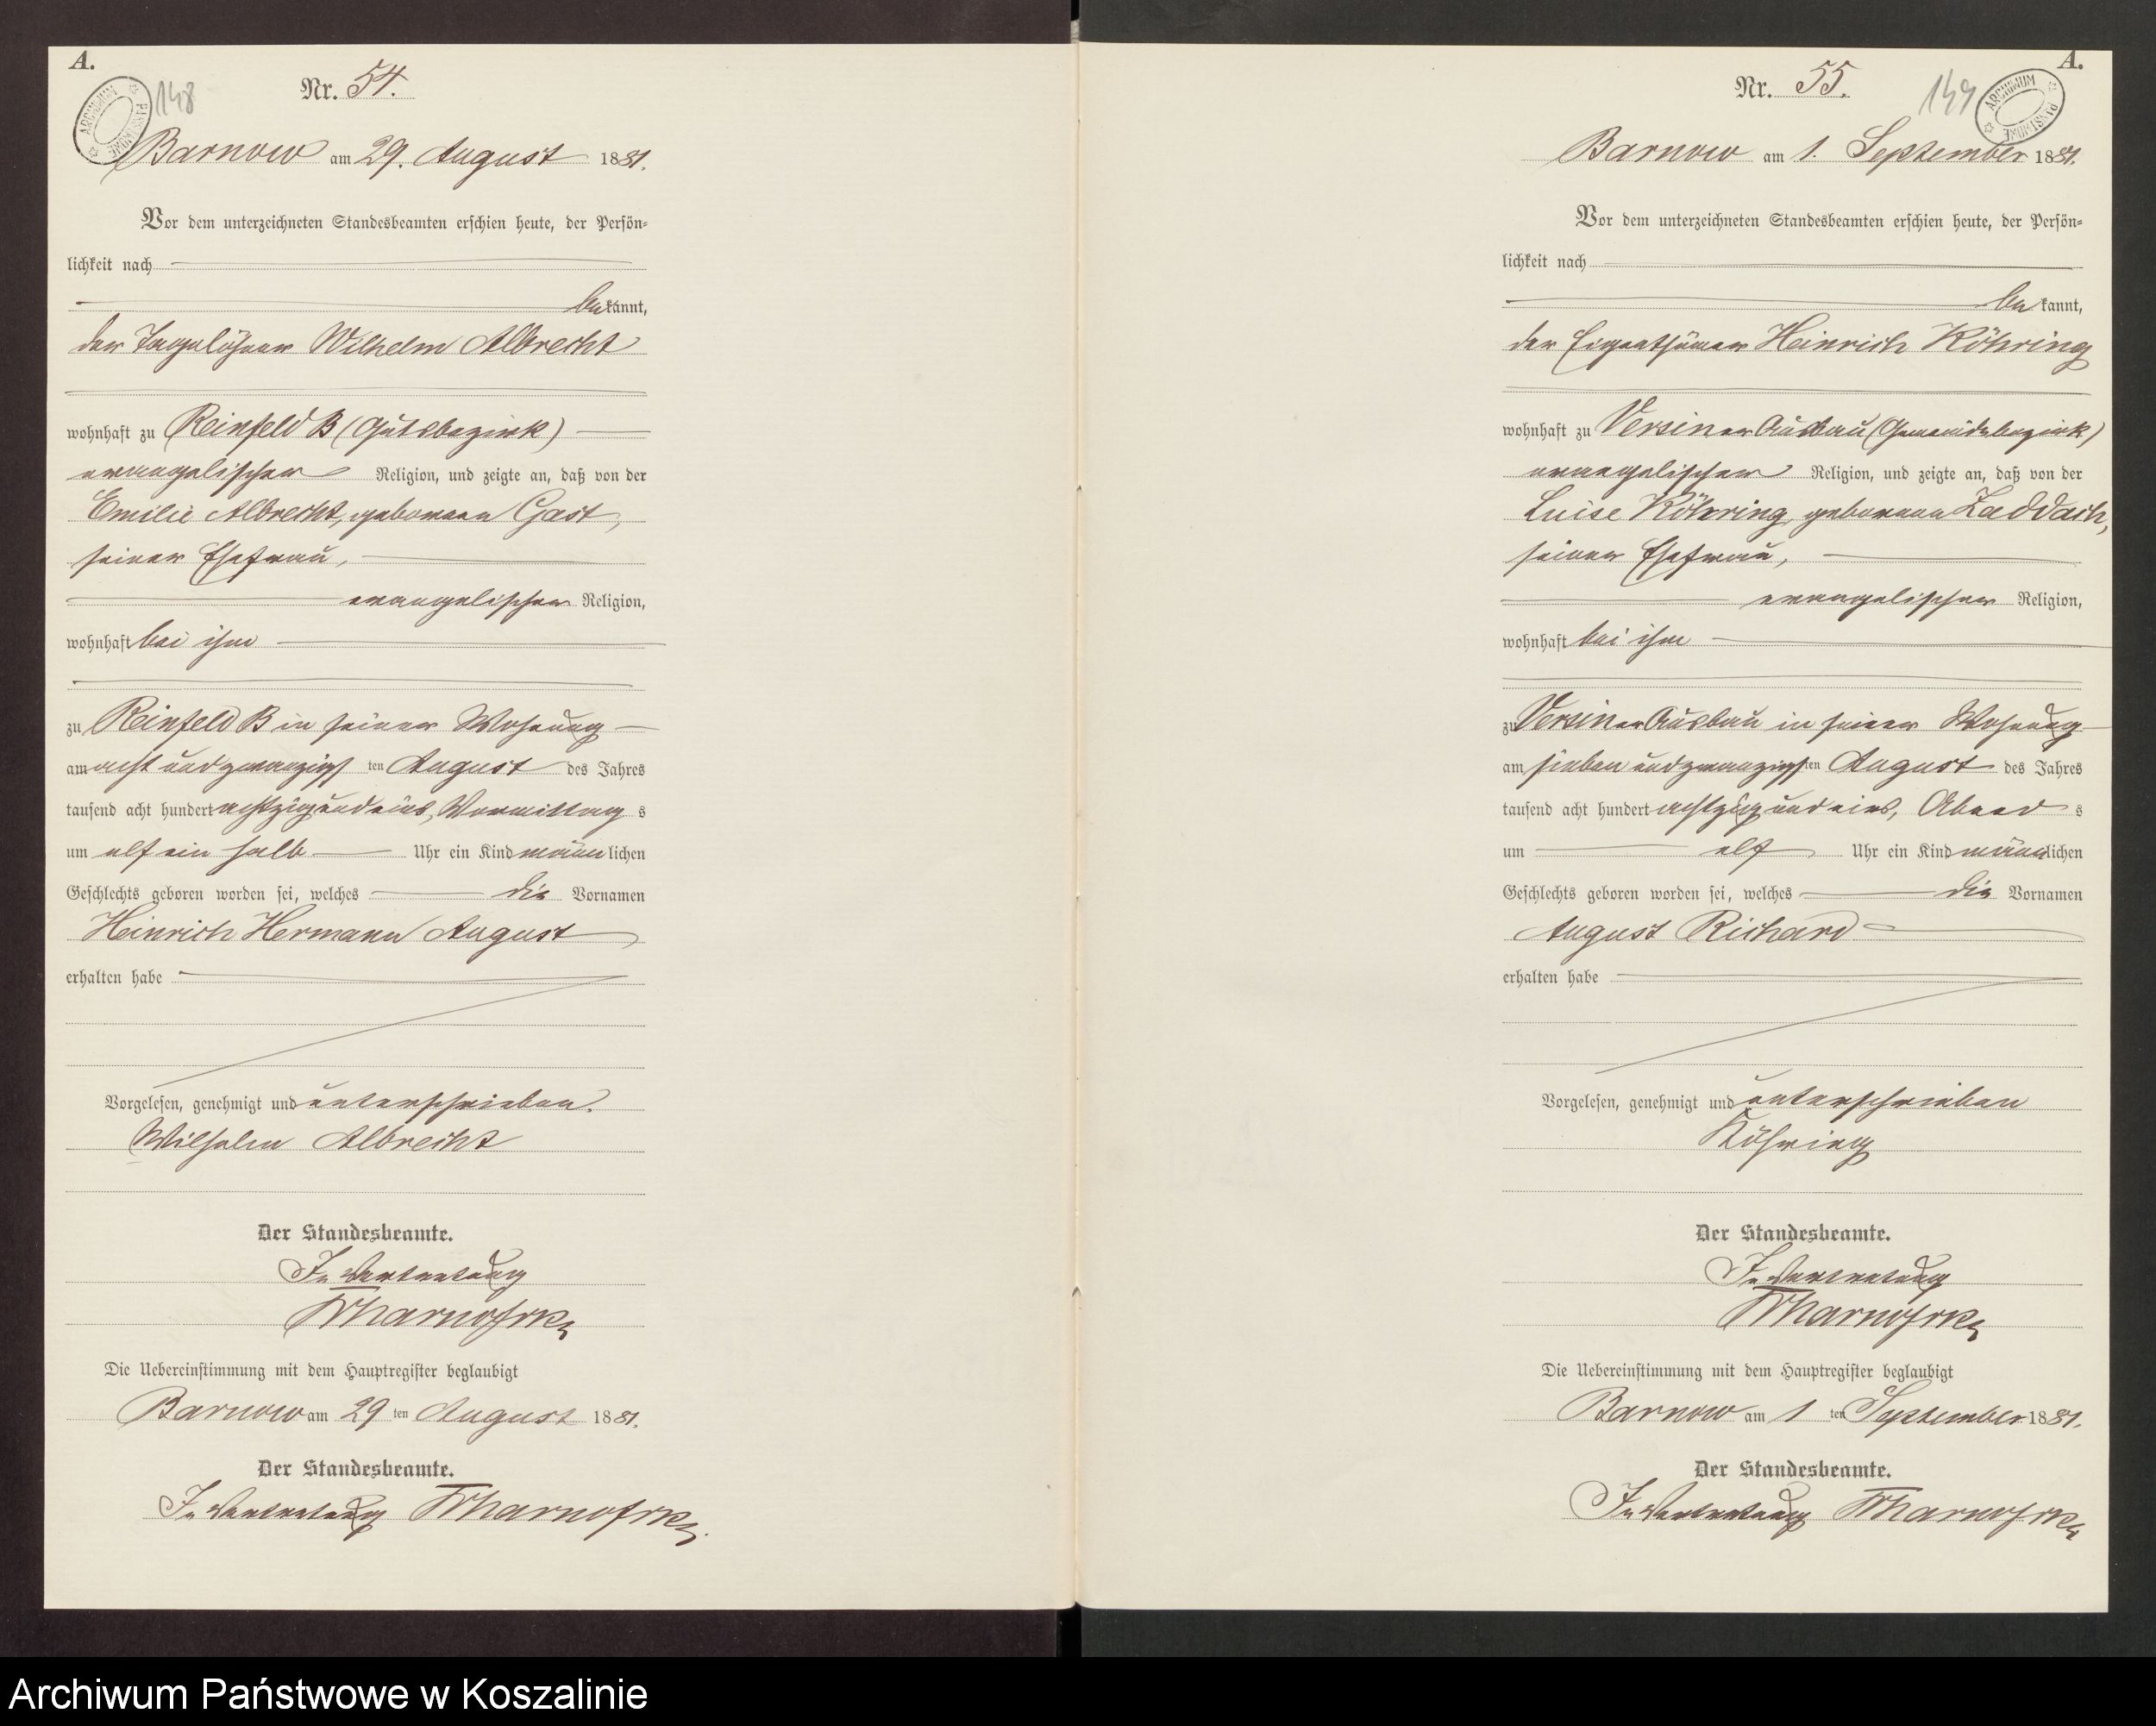 A.
148
ARCHIWUM PAŃSTWOWE
Nr. 54.
Barnow am 29. August 1881.
Vor dem unterzeichneten Standesbeamten erschien heute, der Persön-
lichkeit nach
bekannt,
der Tagelöhner Wilhelm Albrecht
wohnhaft zu Reinfeld B (Gutsbezirk)
evangelischer Religion, und zeigte an, daß von der
Emilie Albrecht, geborenen Gast,
seiner Ehefrau,
evangelischer Religion,
wohnhaft bei ihm
zu Reinfeld B in seiner Wohnung
am acht und zwanzigsten August des Jahres
tausend acht hundert achtzig und eins, Vormittags
um elf ein halb Uhr ein Kind männlichen
Geschlechts geboren worden sei, welches die Vornamen
Heinrich Hermann August
erhalten habe
Vorgelesen, genehmigt und unterschrieben.
Wilhelm Albrecht
Der Standesbeamte.
In Vertretung
Die Uebereinstimmung mit dem Hauptregister beglaubigt
Barnow am 29 ten August 1881.
Der Standesbeamte.
In Vertretung
A.
149
ARCHIWUM PAŃSTWOWE
Nr. 55.
Barnow am 1. September 1881.
Vor dem unterzeichneten Standesbeamten erschien heute, der Persön-
lichkeit nach
bekannt,
der Eigenthümer Heinrich Köhring
wohnhaft zu Versiner Ausbau (Gemeindebezirk)
evangelischer Religion, und zeigte an, daß von der
Luise Köhring, geborenen Laddach,
seiner Ehefrau,
evangelischer Religion,
wohnhaft bei ihm
zu Versiner Ausbau in seiner Wohnung
am sieben und zwanzigsten August des Jahres
tausend acht hundert achtzig und eins, Abends
um elf Uhr ein Kind männlichen
Geschlechts geboren worden sei, welches die Vornamen
August Richard
erhalten habe
Vorgelesen, genehmigt und unterschrieben
Köhring
Der Standesbeamte.
In Vertretung
Die Uebereinstimmung mit dem Hauptregister beglaubigt
Barnow am 1 ten September 1881.
Der Standesbeamte.
In Vertretung
Archiwum Państwowe w Koszalinie